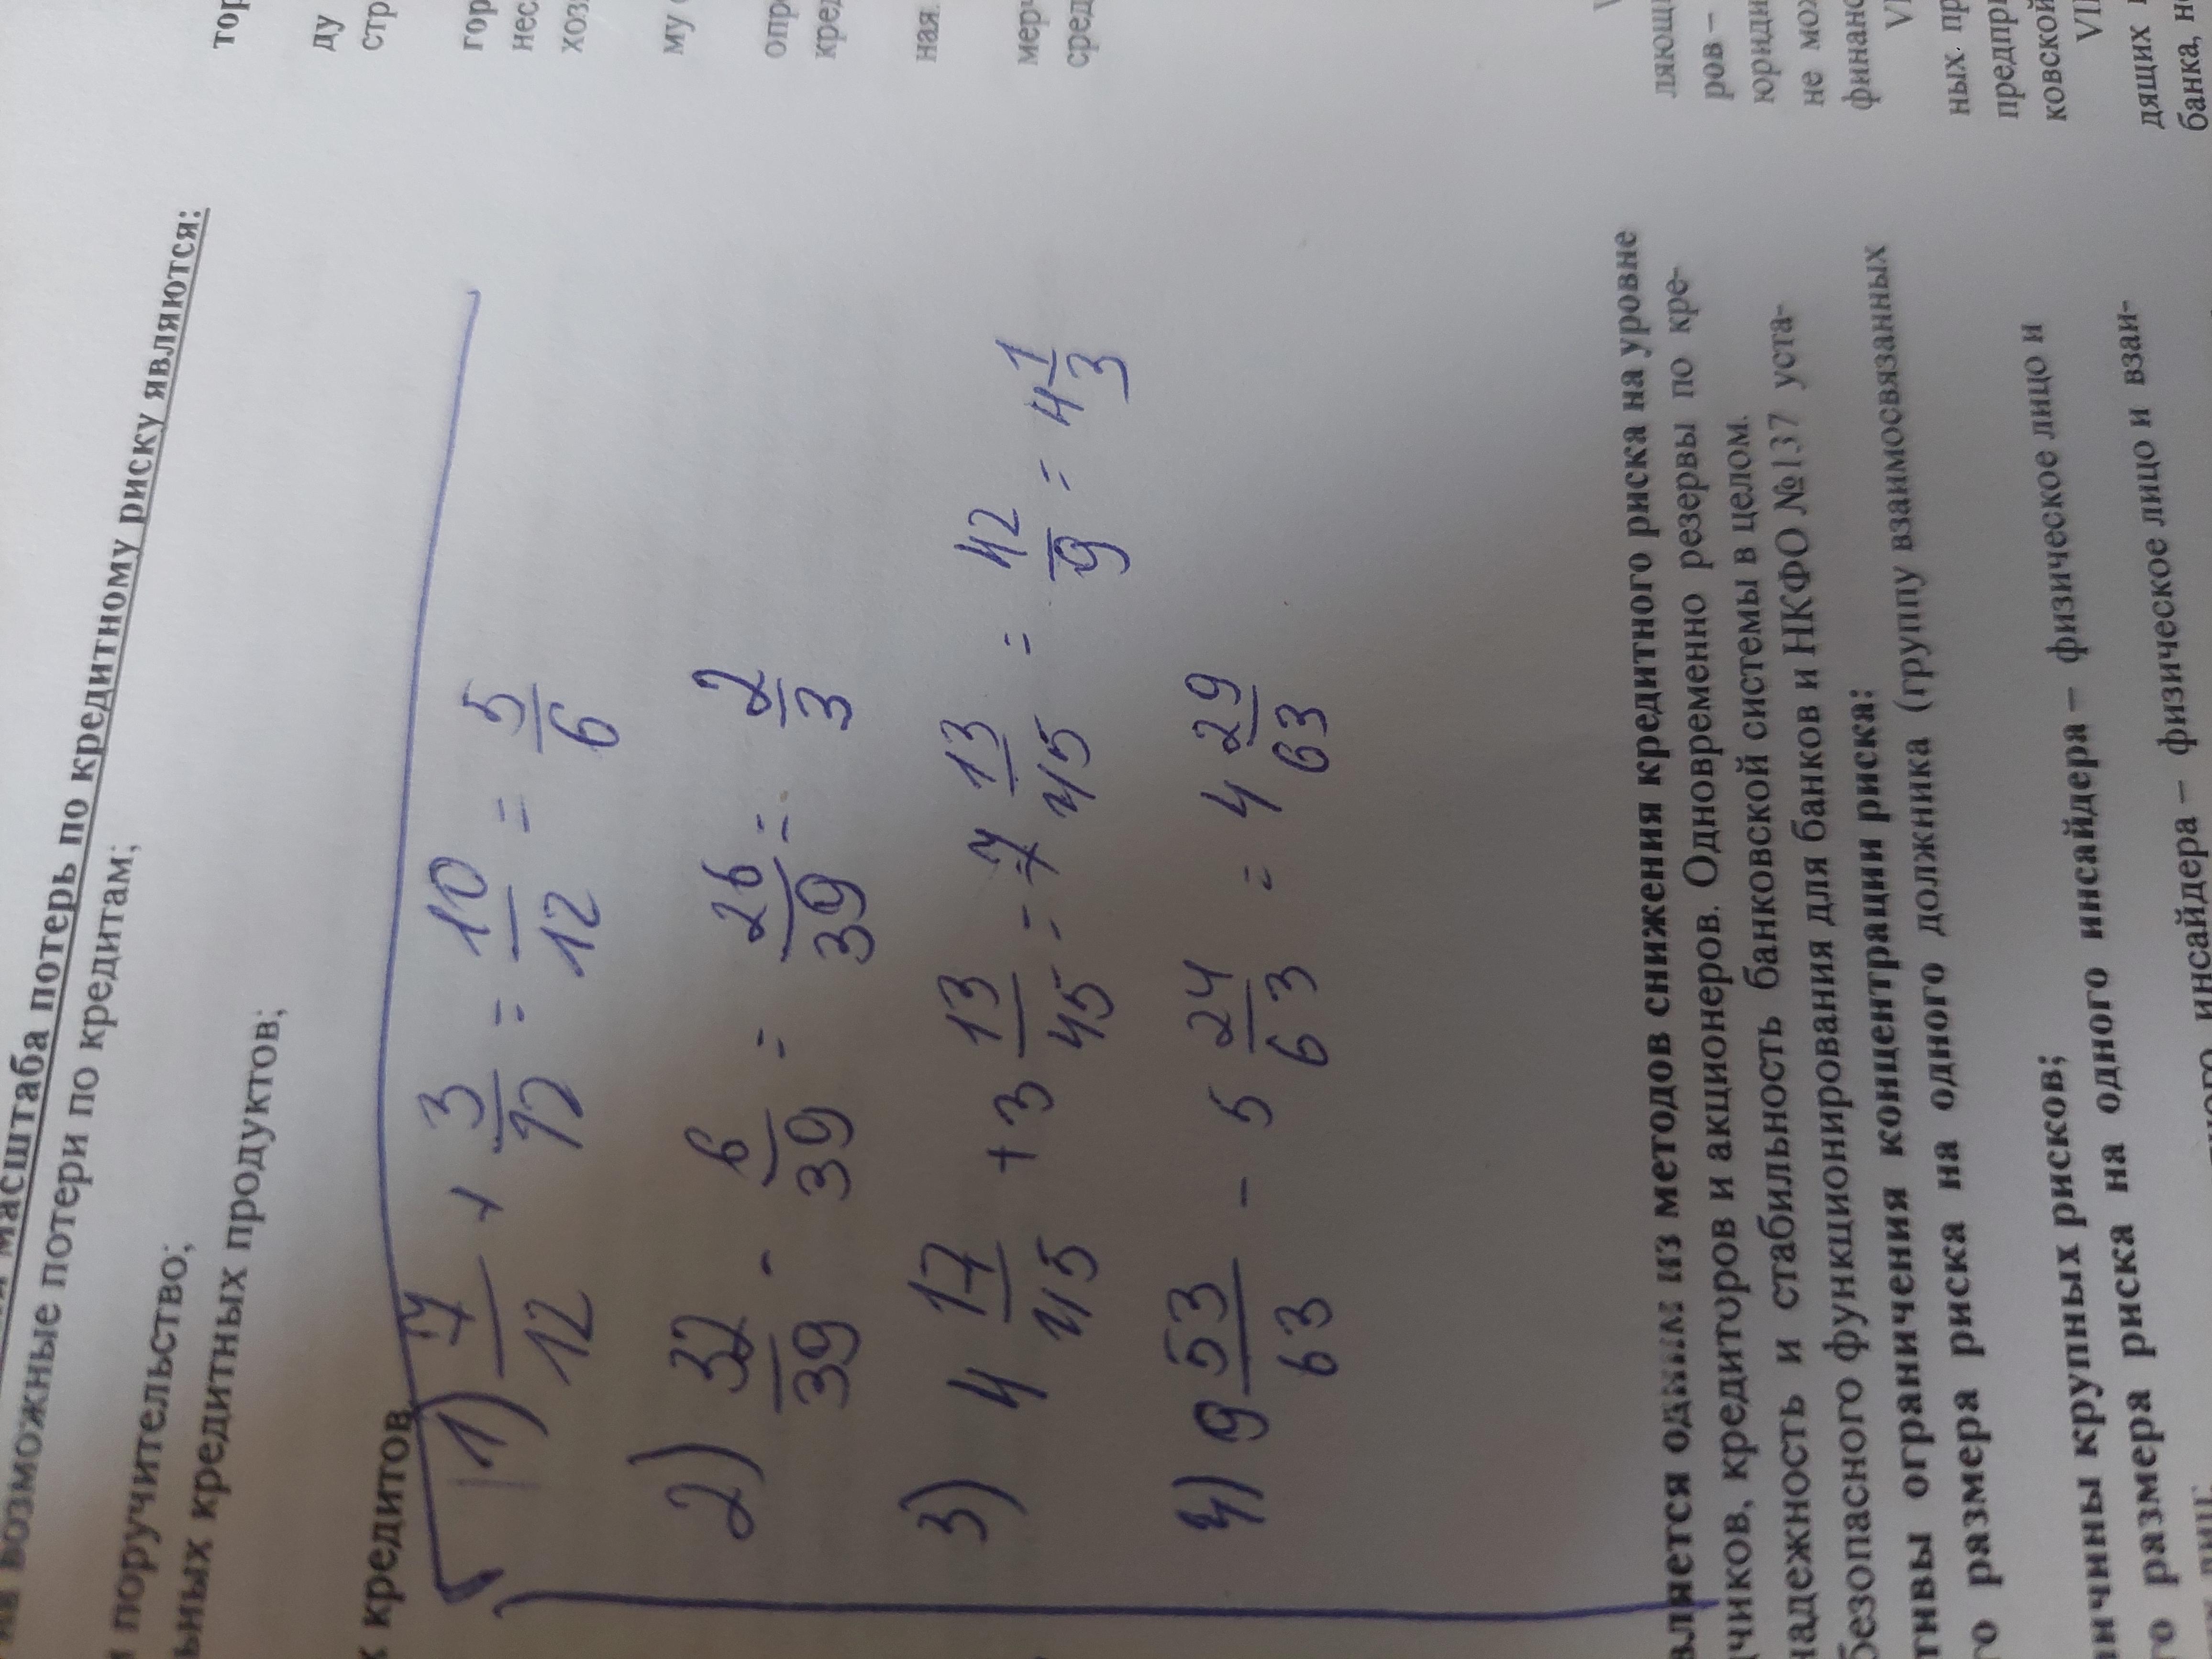 тор
ду
стр
гор
нес
хоз
му
опр
кред
ная.
мерч
сред
масштаба потерь по кредитному риску являются:
возможные потери по кредитам;
поручительство;
ьных кредитных продуктов;
х кредитов.
1) 7/12 + 3/12 = 10/12 = 5/6
2) 32/39 - 6/39 = 26/39 = 2/3
3) 4 17/45 + 3 13/45 = 7 13/45 = 42/9 = 4 1/3
4) 9 53/63 - 5 24/63 = 4 29/63
вляется одним из методов снижения кредитного риска на уровне
чиков, кредиторов и акционеров. Одновременно резервы по кре-
надежность и стабильность банковской системы в целом.
безопасного функционирования для банков и НКФО №137 уста-
тивы ограничения концентрации риска:
го размера риска на одного должника (группу взаимосвязанных
ичины крупных рисков;
го размера риска на одного инсайдера – физическое лицо и
инсайдера – физическое лицо и взаи-
ляющи
ров –
юриди
не мож
финанс
VI
ных пр
предпри
ковской
VII
дящих
банка, не